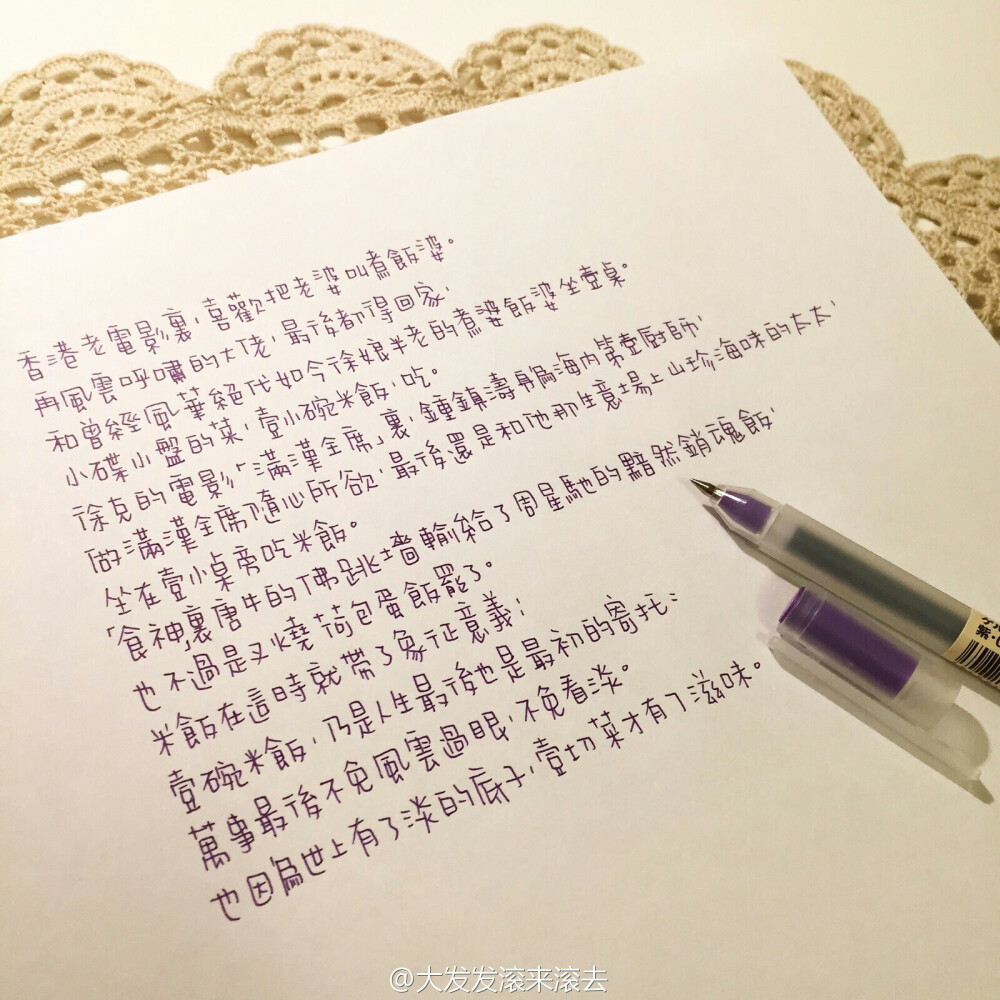 香港老電影裏，喜歡把老婆叫煮飯婆。
再風雲呼嘯的大佬，最後都得回家，
和曾經風華絕代如今徐娘半老的煮婆飯婆坐壹桌。
小碟小盤的菜，壹小碗米飯，吃。
徐克的電影「滿漢全席」裏，鍾鎮濤身爲海內第壹廚師，
做滿漢全席隨心所欲，最後還是和他那生意場上山珍海味的太太，
坐在壹小桌旁吃米飯。
「食神」裏唐牛的佛跳墻輸給了周星馳的黯然銷魂飯，
也不過是叉燒荷包蛋飯罷了。
米飯在這時就帶了象征意義；
壹碗米飯，乃是人生最後也是最初的寄托；
萬事最後不免風雲過眼，不免看淡。
也因爲世上有了淡的底子，壹切菜才有了滋味。
@大发发滚来滚去